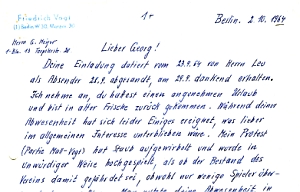 Friedrich Vogt
1+
Berlin, 2.10.1964
Herrn G. Meyer
Lieber Georg!
Deine Einladung datiert vom 23.9.64 von Leo
als Absender 28.9. abgesandt, am 29. dankend erhalten.
Ich nehme an, du hattest einen angenehmen Urlaub
und bist in alter Frische zurück gekommen. Während deiner
Abwesenheit hat sich leider Einiges ereignet, was lieber
im allgemeinen Interesse unterblieben wäre. Mein Protest
(Partie Maß-Vogt) hat Staub aufgewirbelt und wurde in
unwürdiger Weise hochgespielt, als ob der Bestand des
Vereins damit gefährdet sei, obwohl nur wenige Spieler über-
Abwesenheit in